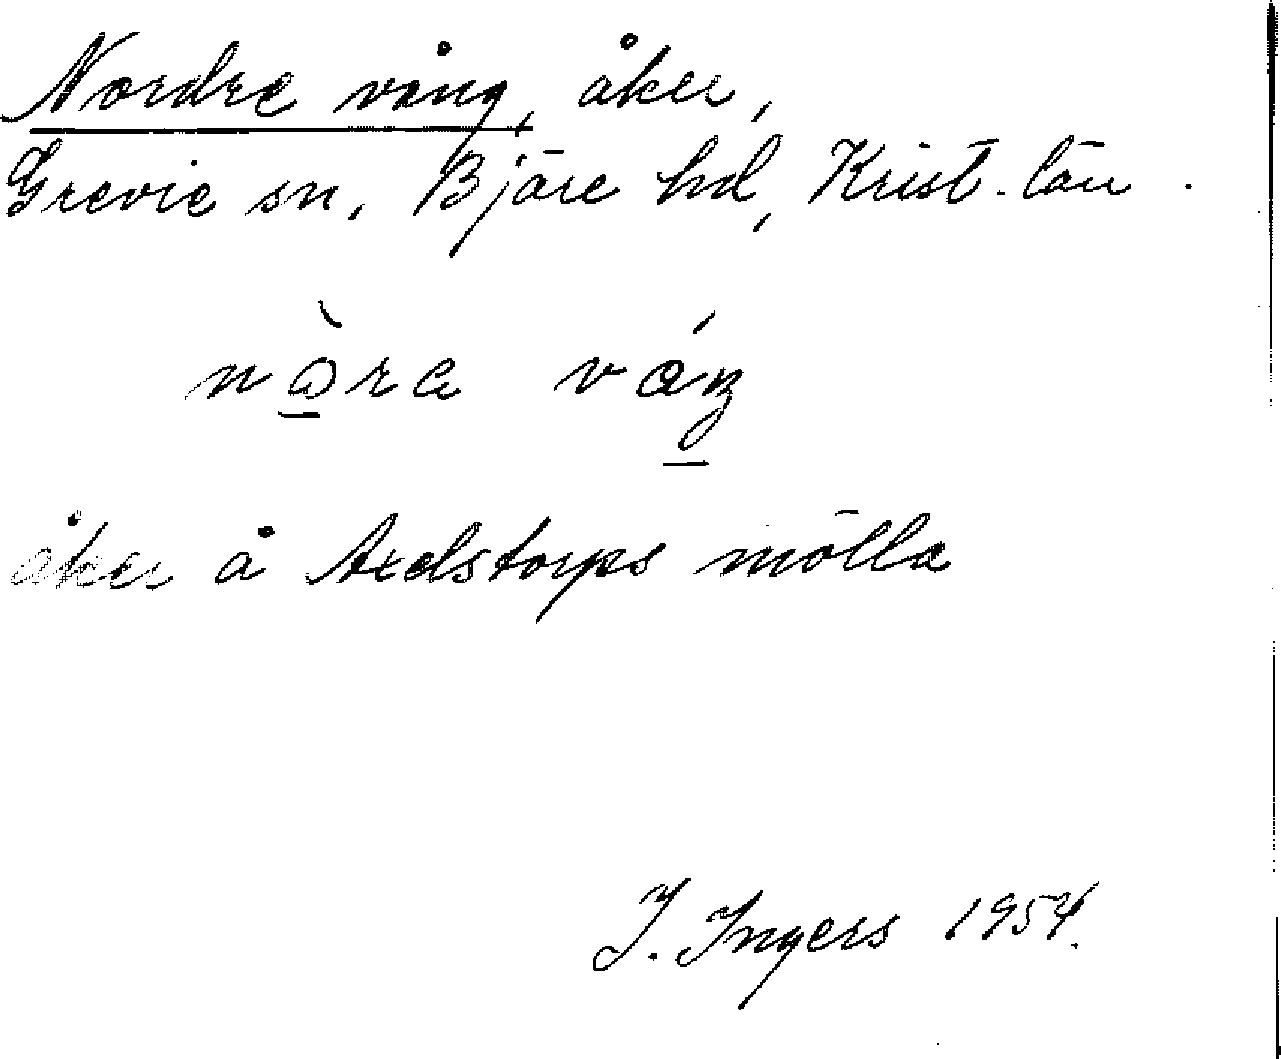 Nordre vång, åker,
Grevie sn, Bjäre hd, Krist. län.
åker å Axelstorps mölla
I. Ingers 1954.